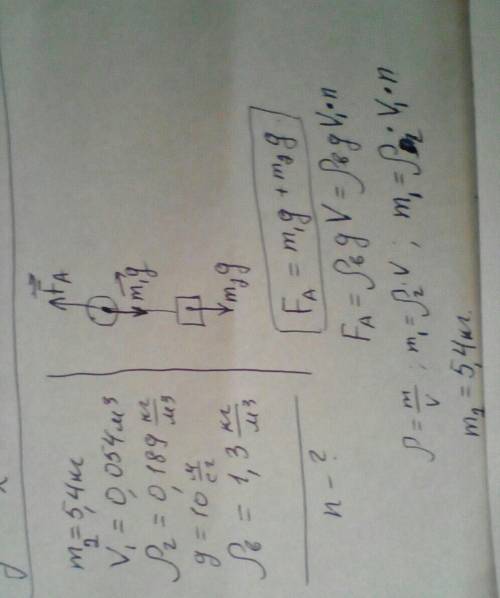 m₂ = 5,4 кг
V₁ = 0,054 м³
ρг = 0,189 кг/м³
g = 10 м/с²
ρв = 1,3 кг/м³
n - ?
F⃗A
m⃗₁g
m₂g
FA = m₁g + m₂g
FA = ρв g V = ρв g V₁·n
ρ = m/V ; m₁ = ρг·V ; m₁ = ρг·V₁·n
m₂ = 5,4 кг.